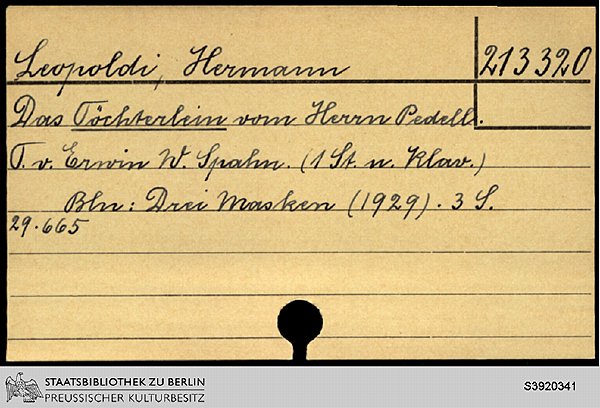 Leopoldi, Hermann
213320
Das Töchterlein vom Herrn Pedell.
T. v. Erwin W. Spahn. (1 St. u. Klav.)
Bln: Drei Masken (1929). 3 S.
29.665
STAATSBIBLIOTHEK ZU BERLIN
PREUSSISCHER KULTURBESITZ
S3920341